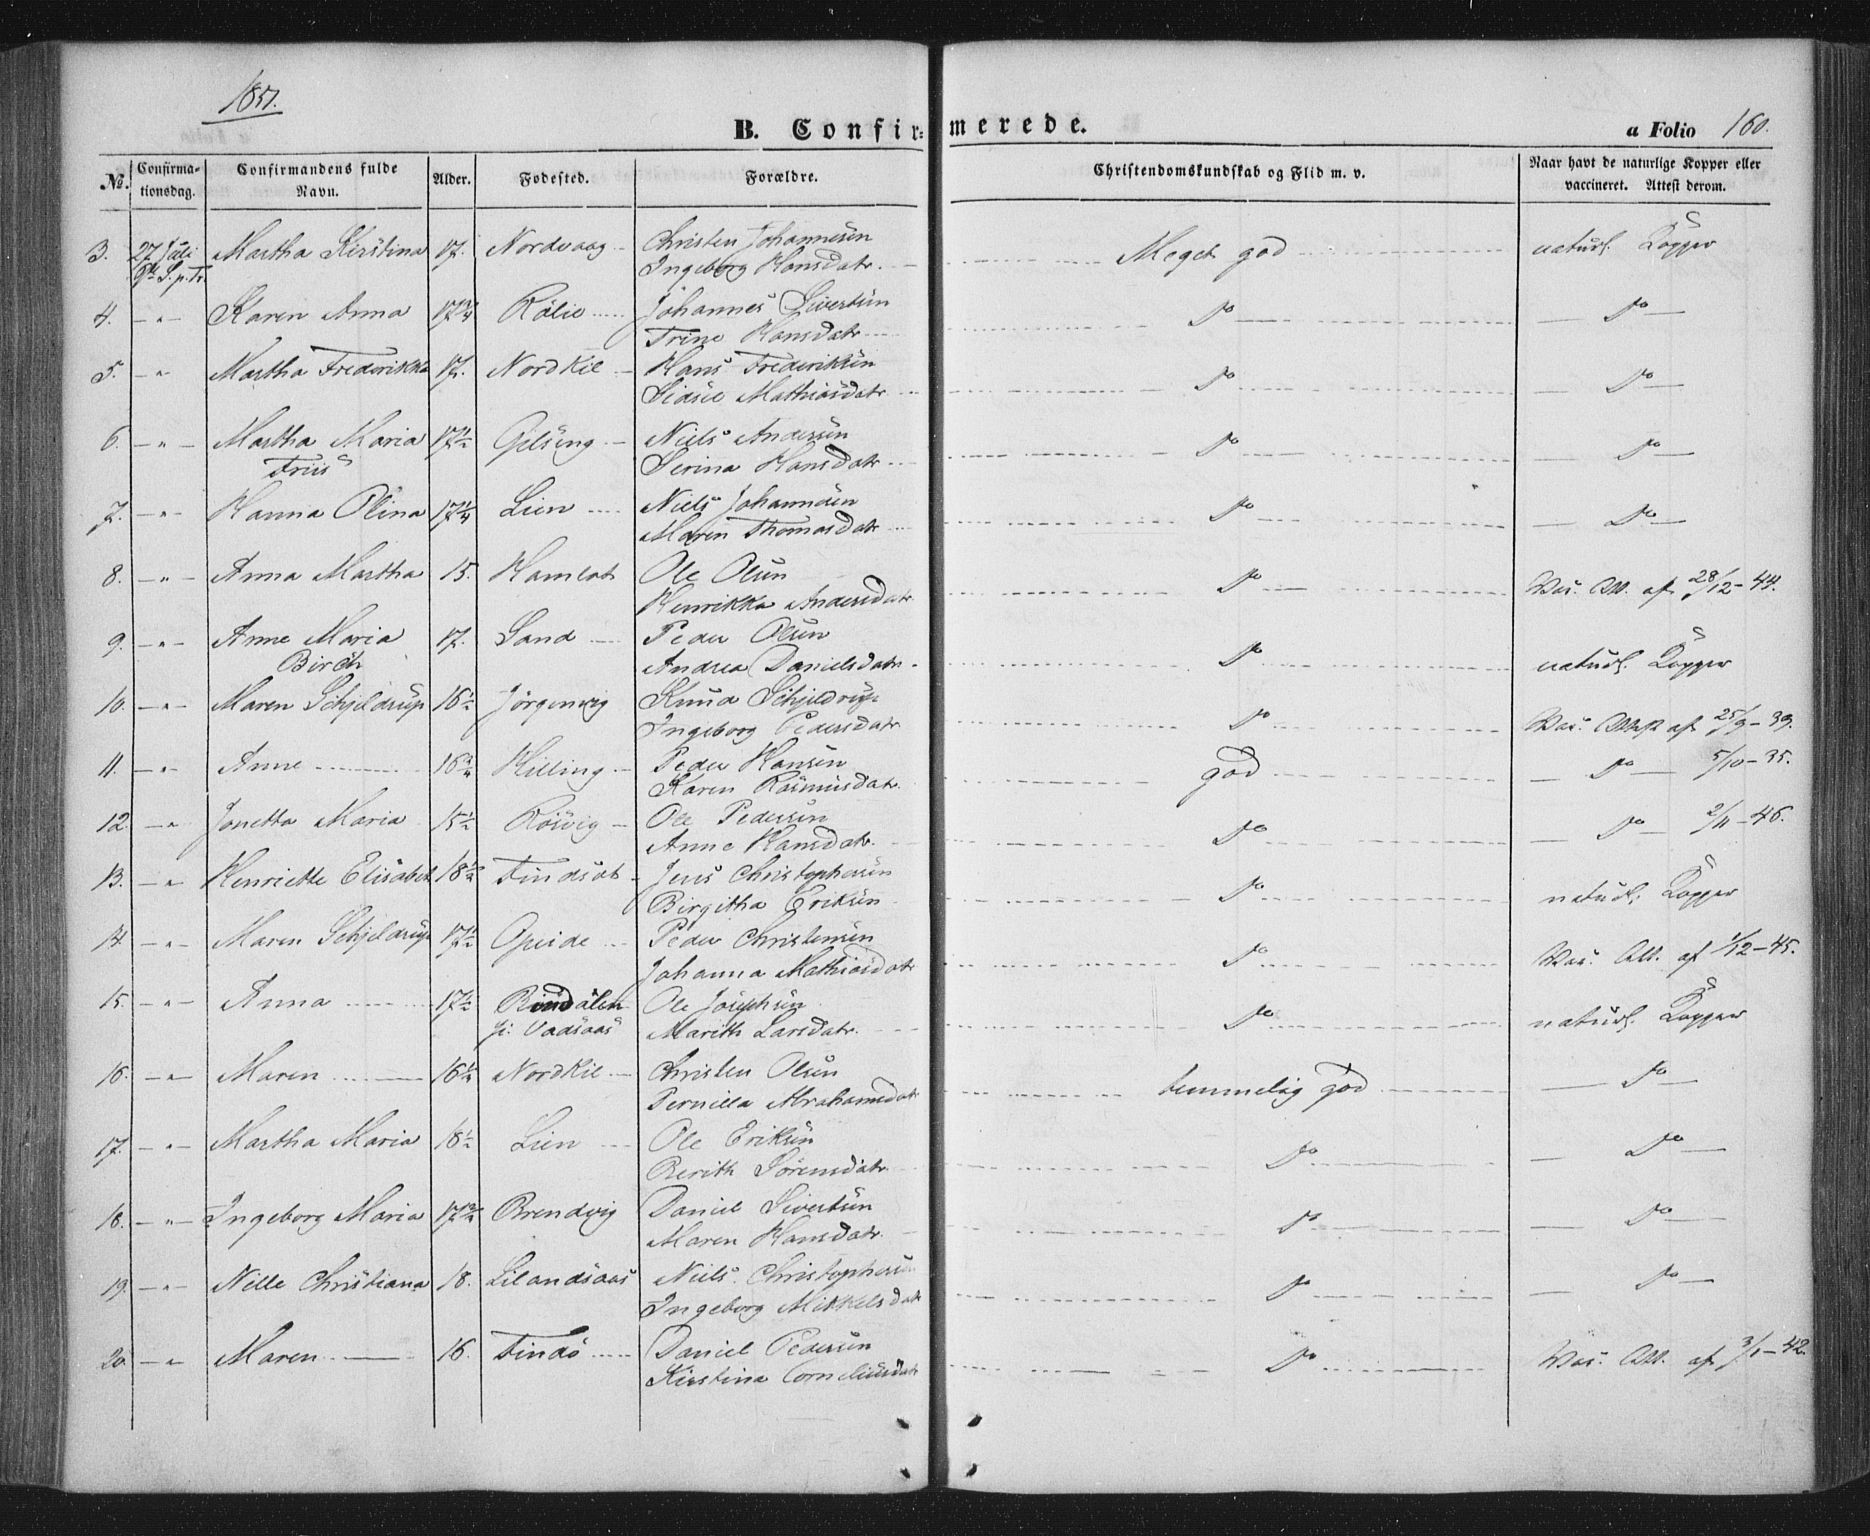 1851.
B. Confirmerede.
a Folio 160.
No. Confirmationsdag. Confirmandens fulde Navn. Alder. Fodested. Forældre. Christendomskundskab og Flid m. v. Naar havt de naturlige Kopper eller vaccineret. Attest derom.
3. 27 Juli Martha Kirstina 17. Nordvaag Christen Johannesen Meget god naturl. Kopper
9de S. p. Tr. Ingeborg Hansdatr.
4. -"- Karen Anna 17 3/4 Johannes Sivertsen Do Do
Trine Hansdatr
5. -"- Martha Frederikka 17. Nordkil Hans Frederiksen Do Do
Sidsel Mathiasdatr
6. -"- Martha Maria 17 1/2 Niels Andersen Do Do
Friis Serina Hansdatr
7. -"- Hanna Olina 17 1/4 Lien Niels Johannesen Do Do
Maren Thomasdatr
8. -"- Anna Martha 15. Hamlot Ole Olsen Do Vac. Att. af 28/12-44.
Henrikka Andersdatr
9. -"- Anne Maria 17. Sand Peder Olsen Do naturl. Kopper
Birch Andrea Danielsdatr
10. -"- Maren Schjeldrup 16 1/2 Jörgenvig Knud Schjeldrup Do Vac. Attest af 25/9-39.
Ingeborg Pedersdatr
11. -"- Anne 16 3/4 Killing Peder Hansen god Do 5/10-35.
Karen Rasmusdatr
12 -"- Jonetta Maria 15 1/2 Rösvig Ole Pedersen Do Do 2/11-46.
Anne Hansdatr.
13. -"- Henriette Elisabet 18 1/2 Findsæt Jens Christophersen Do naturl. Kopper
Birgitha Eriksen
14. -"- Maren Schjeldrup 17 1/2 Opeide Peder Christensen Do Vac. Att. af 1/12-45.
Johanna Mathiasdatr
15. -"- Anna 17 1/2 Rindalen Ole Josephsen Do naturl. Kopper
Marith Larsdatr.
16. -"- Maren 16 1/4 Nordkil Christen Olsen temmelig god Do
Pernella Abrahamsdatr
17. -"- Martha Maria 18 1/2 Lien Ole Eriksen Do Do
Berith Sörensdatr
18. -"- Ingeborg Maria 17 3/4 Brendvig Daniel Sivertsen Do Do
Maren Hansdatr.
19. -"- Nille Christiana 18. Lilandsaas Niels Christophersen Do Do
Ingeborg Mikkelsdatr
20. -"- Maren 16. Findö Daniel Pedersen Do Vac. Att. af 3/1-42.
Kirstina Corneliusdatr